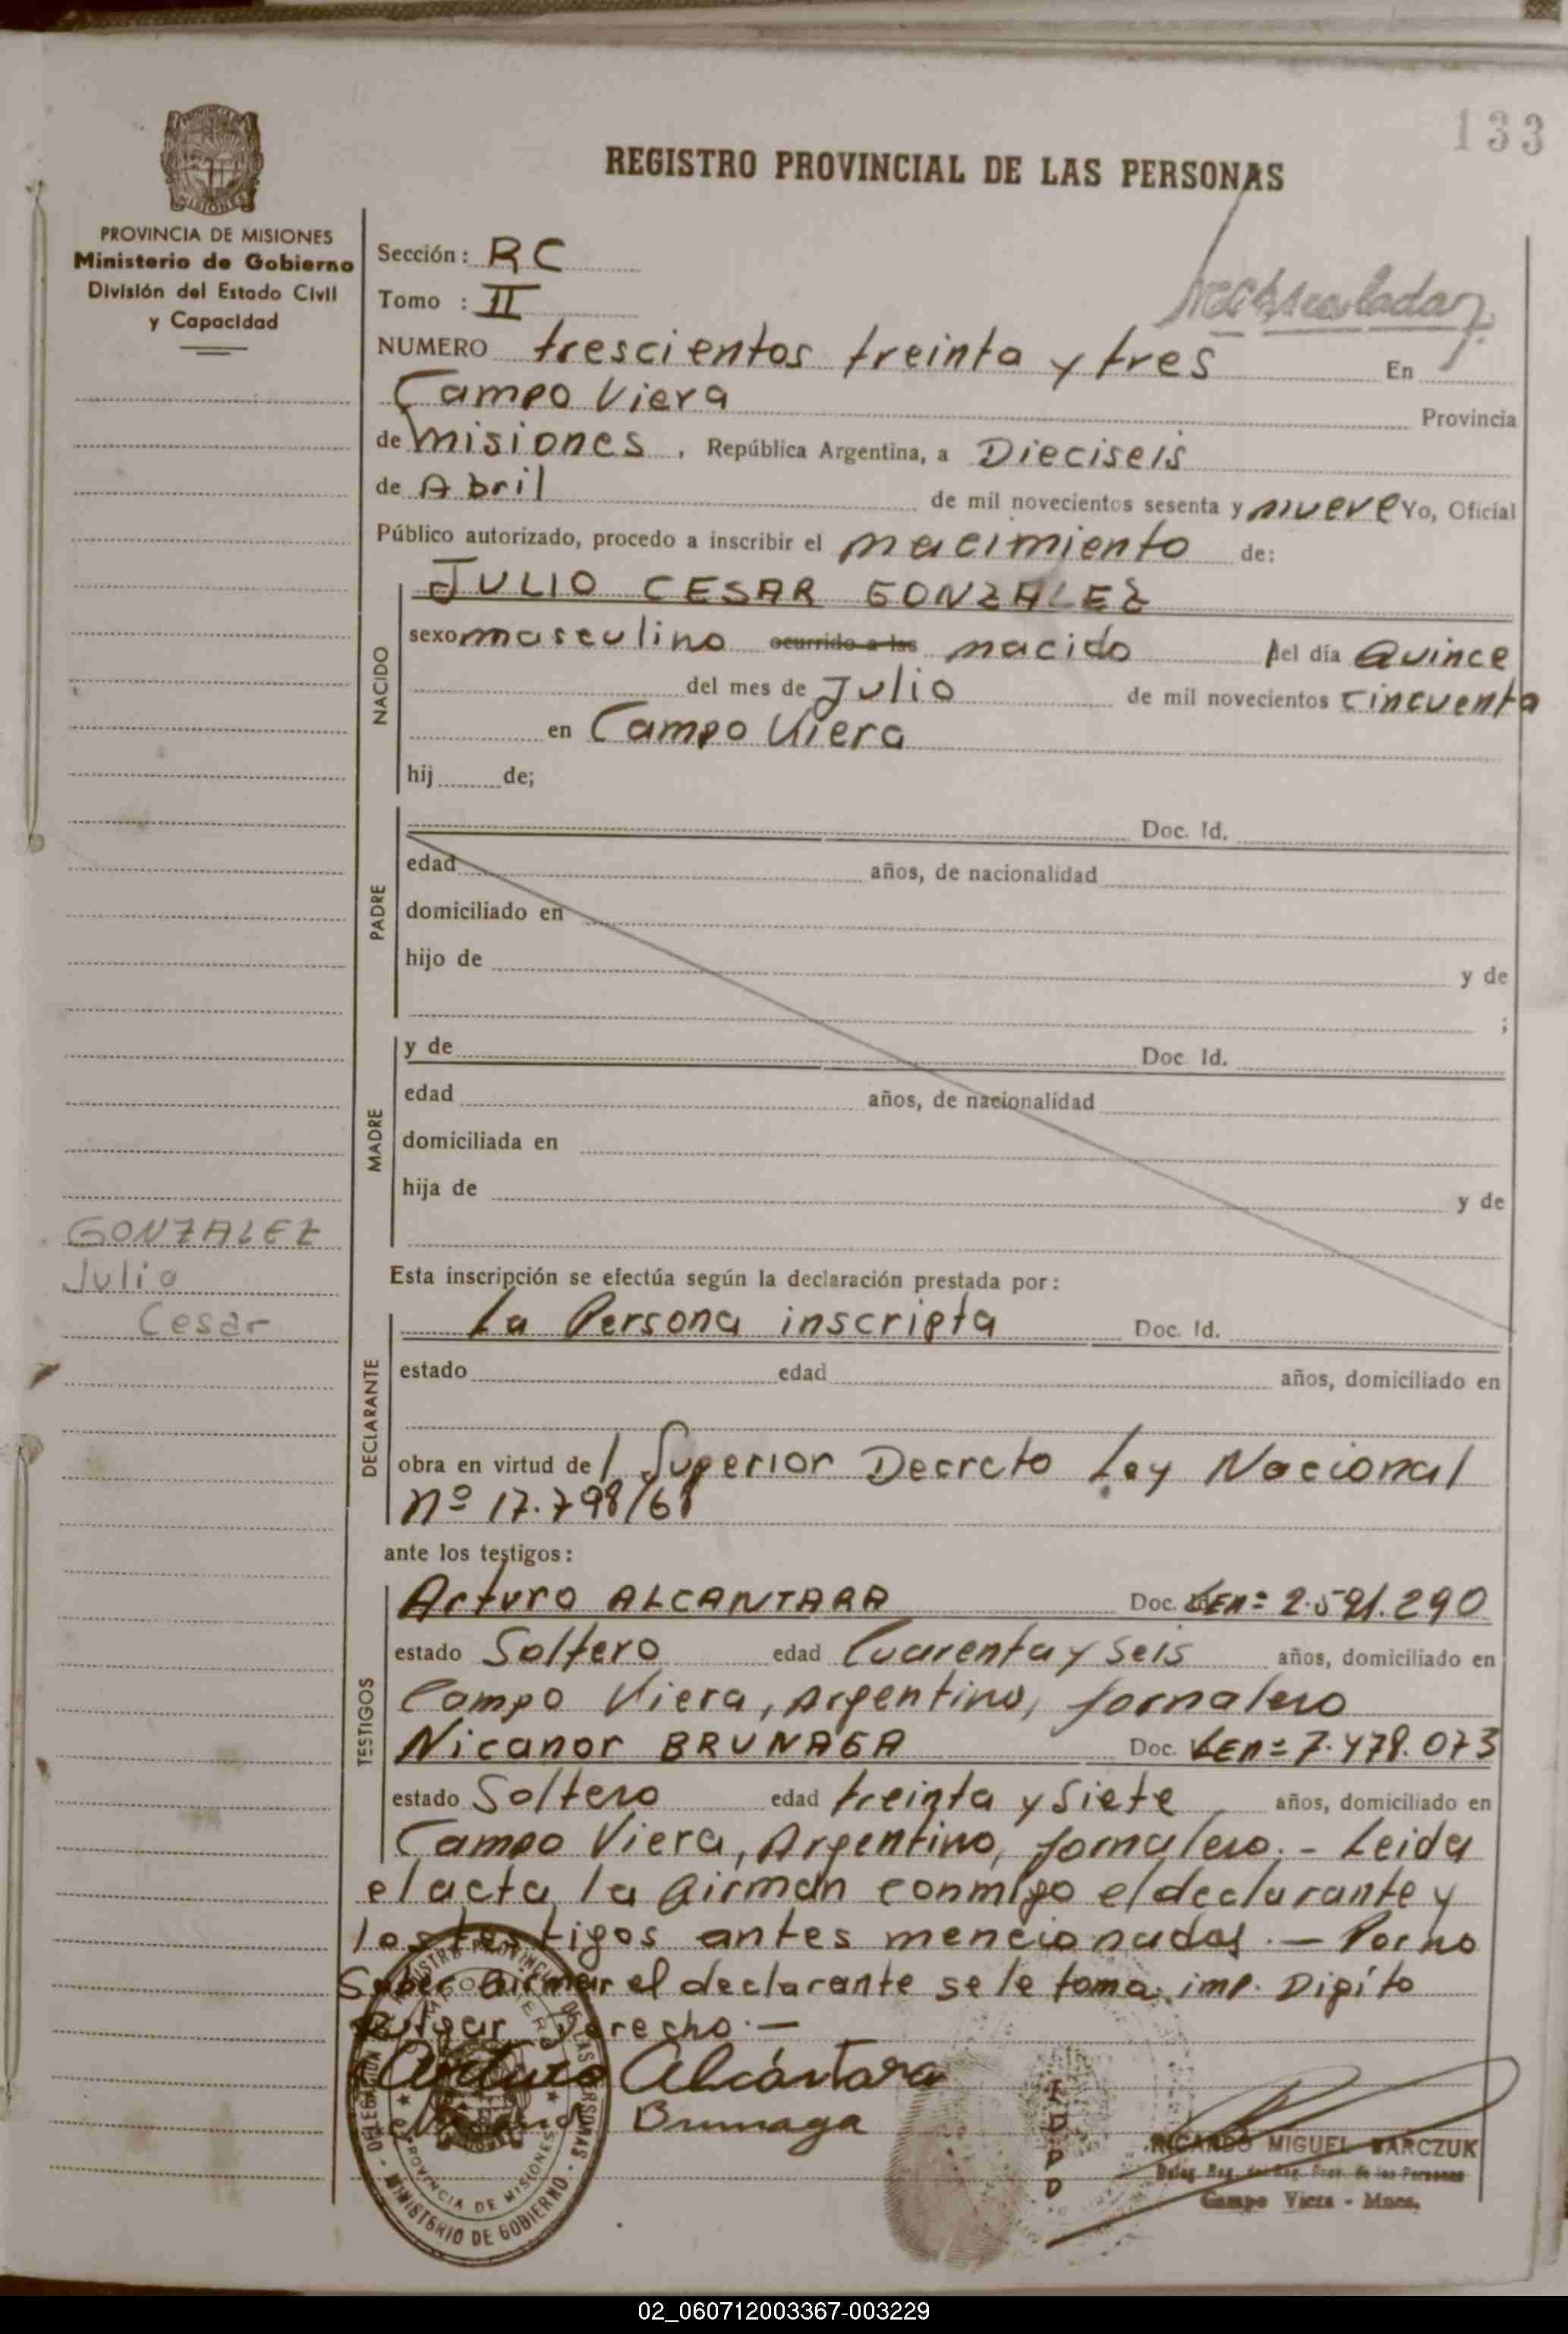 133
REGISTRO PROVINCIAL DE LAS PERSONAS
PROVINCIA DE MISIONES
Ministerio de Gobierno
División del Estado Civil
y Capacidad
Sección: RC
Tomo : II
NUMERO trescientos treinta y tres En
Campo Viera Provincia
de misiones, República Argentina, a Dieciseis
de Abril de mil novecientos sesenta y nueve Yo, Oficial
Público autorizado, procedo a inscribir el nacimiento de:
JULIO CESAR GONZALEZ
NACIDO
sexo masculino ocurrido a las nacido del día Quince
del mes de Julio de mil novecientos cincuenta
en Campo Viera
hij de;
PADRE
Doc. Id.
edad años, de nacionalidad
domiciliado en
hijo de y de
;
MADRE
y de Doc. Id.
edad años, de nacionalidad
domiciliada en
hija de y de
GONZALEZ
Julio
Cesar
Esta inscripción se efectúa según la declaración prestada por:
DECLARANTE
La Persona inscripta Doc. Id.
estado edad años, domiciliado en
obra en virtud del Superior Decreto Ley Nacional
nº 17.798/68
ante los testigos:
TESTIGOS
Arturo ALCANTARA Doc. 2.591.290
estado Soltero edad Cuarenta y Seis años, domiciliado en
Campo Viera, Argentino, Jornalero
Nicanor BRUNAGA Doc. 7.478.073
estado Soltero edad treinta y Siete años, domiciliado en
Campo Viera, Argentino, Jornalero.- Leida
el acta, la Firman conmigo el declarante y
los testigos antes mencionados.- Por no
Saber Firmar el declarante se le toma imp. Digíto
Pulgar Derecho.-
Arturo Alcántara
Brunaga
I
D
P
D
RICARDO MIGUEL BARCZUK
Deleg. Reg. del Reg. Prov. de las Personas
Campo Viera - Mnes.
MINISTERIO DE GOBIERNO
PROVINCIA DE MISIONES
02_060712003367-003229